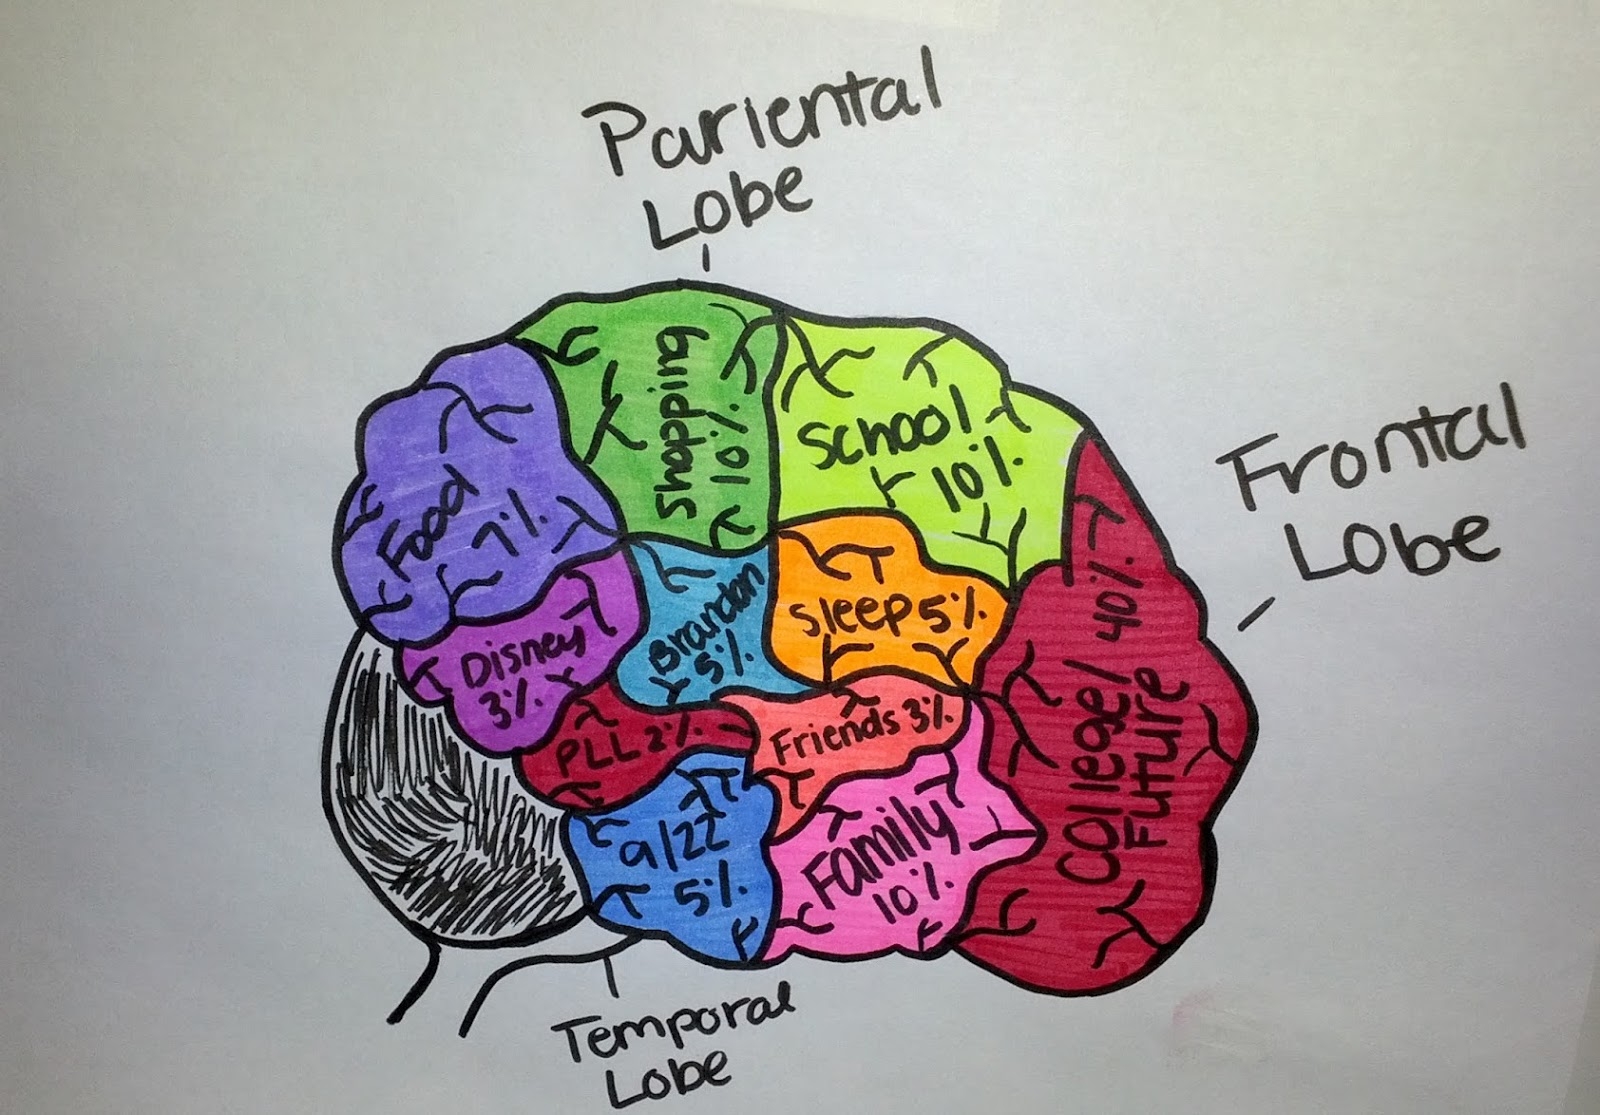 Pariental
Lobe
Frontal
Lobe
Shopping
10%
School
10%
Food
7%
Disney
3%
Brandon
5%
Sleep 5%
College/ 40%
Future
PLL 2%
Friends 3%
9/22
5%
Family
10%
Temporal
Lobe